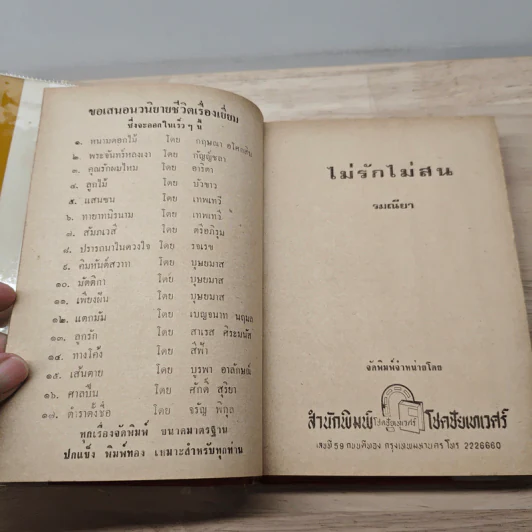 ขอเสนอนวนิยายชีวิตเรื่องเยี่ยม
ซึ่งจะออกในเร็ว ๆ นี้
๑. หนามดอกไม้ โดย กฤษณา อโศกสิน
๒. พระจันทร์หลงเงา โดย กัญญ์ชลา
๓. คุณรักผมไหม โดย อาริตา
๔. ลูกไม้ โดย บัวขาว
๕. แสนซน โดย เทพเทวี
๖. ทายาทนิรนาม โดย เทพเทวี
๗. สัมภเวสี โดย ตรีอภิรุม
๘. ปรารถนาในดวงใจ โดย รจเรข
๙. คิมหันต์สวาท โดย บุษยมาส
๑๐. มัตติกา โดย บุษยมาส
๑๑. เพียงฝัน โดย บุษยมาส
๑๒. แตกมัม โดย เบญจนาท
๑๓. ลูกรัก โดย สาเรส ศิระมนัส
๑๔. ทางโค้ง โดย สีฟ้า
๑๕. เส้นตาย โดย บูรพา อาลักษณ์
๑๖. ศาลปืน โดย ศักดิ์ สุริยา
๑๗. ตำราตั้งชื่อ โดย จรัญ พิกุล
ทุกเรื่องจัดพิมพ์ ขนาดมาตรฐาน
ปกแข็ง พิมพ์ทอง เหมาะสำหรับทุกท่าน
ไม่รักไม่สน
รมณียา
จัดพิมพ์จำหน่ายโดย
สำนักพิมพ์ โชคชัยเทเวศร์ โชคชัยเทเวศร์
เลขที่ 59 ถนนตีทอง กรุงเทพมหานคร โทร 2226660